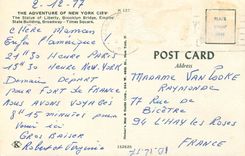 2-12-77
THE ADVENTURE OF NEW YORK CITY
The Statue of Liberty, Brooklyn Bridge, Empire
State Building, Broadway - Times Square.
Chère Maman
Enfin l'amérique!
24h30 Heure Paris
18h30 Heure New York
Demain Départ
pour Fort de France
nous avons voyagés
8h15 minutes pour
venir ici
Gros Baiser
Robert et Virginia
POST CARD
Madame Van Looke
Raymonde
77 Rue de
Bicêtre
94 L'Hay les Roses
France